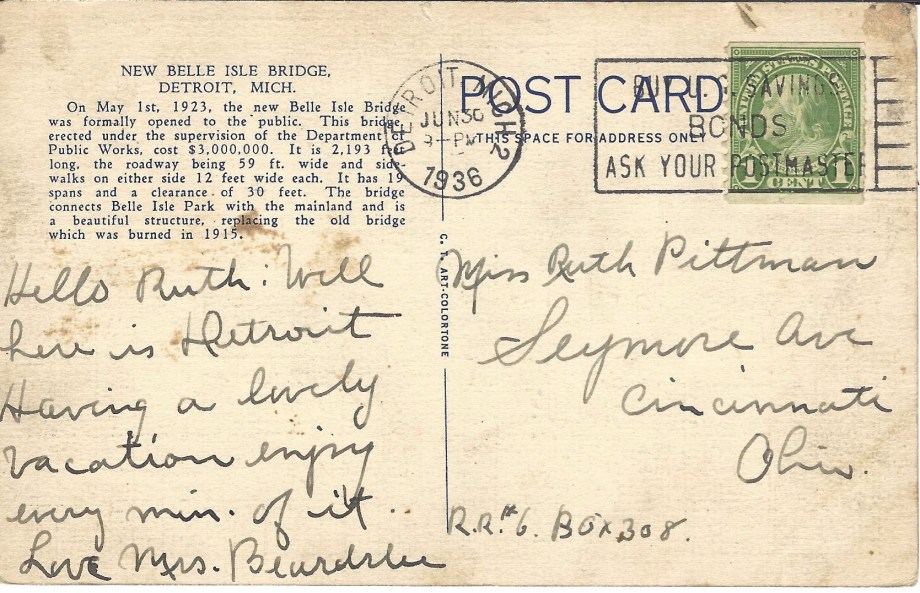 NEW BELLE ISLE BRIDGE,
DETROIT, MICH.
On May 1st, 1923, the new Belle Isle Bridge
was formally opened to the public. This bridge,
erected under the supervision of the Department of
Public Works, cost $3,000,000. It is 2,193 feet
long, the roadway being 59 ft. wide and side-
walks on either side 12 feet wide each. It has 19
spans and a clearance of 30 feet. The bridge
connects Belle Isle Park with the mainland and is
a beautiful structure, replacing the old bridge
which was burned in 1915.
Hello Ruth: Will
here is Detroit
Having a lovely
vacation enjoy
every min. of it.
Love Mrs. Beardslee
C. T. ART-COLORTONE
DETROIT, MICH. 2
JUN 30
PM
1936
POST CARD
THIS SPACE FOR ADDRESS ONLY
BUY U.S. SAVINGS
BONDS
ASK YOUR POSTMASTER
1 CENT 1
Miss Ruth Pittman
Seymore Ave
Cincinnati
Ohio.
R.R.#6. Box 308.